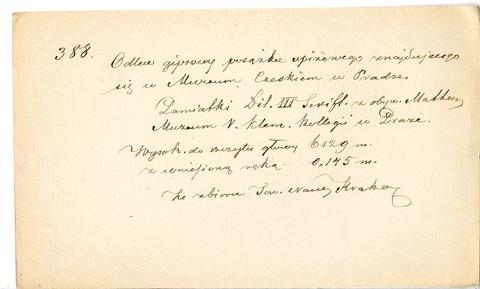 388.
Odlew gipsowy posążka spiżowego znajdującego
się w Muzeum Czeskiem w Pradze.
Pamiatki Dil. III Swift. z obyw. Mathem
Muzeum V. Klem. Kollegii w Praze.
Wysok. do szczytu głowy 0129 m.
z wniesioną ręką 0,145 m.
Ze zbioru Tow. Nauk. Krakow